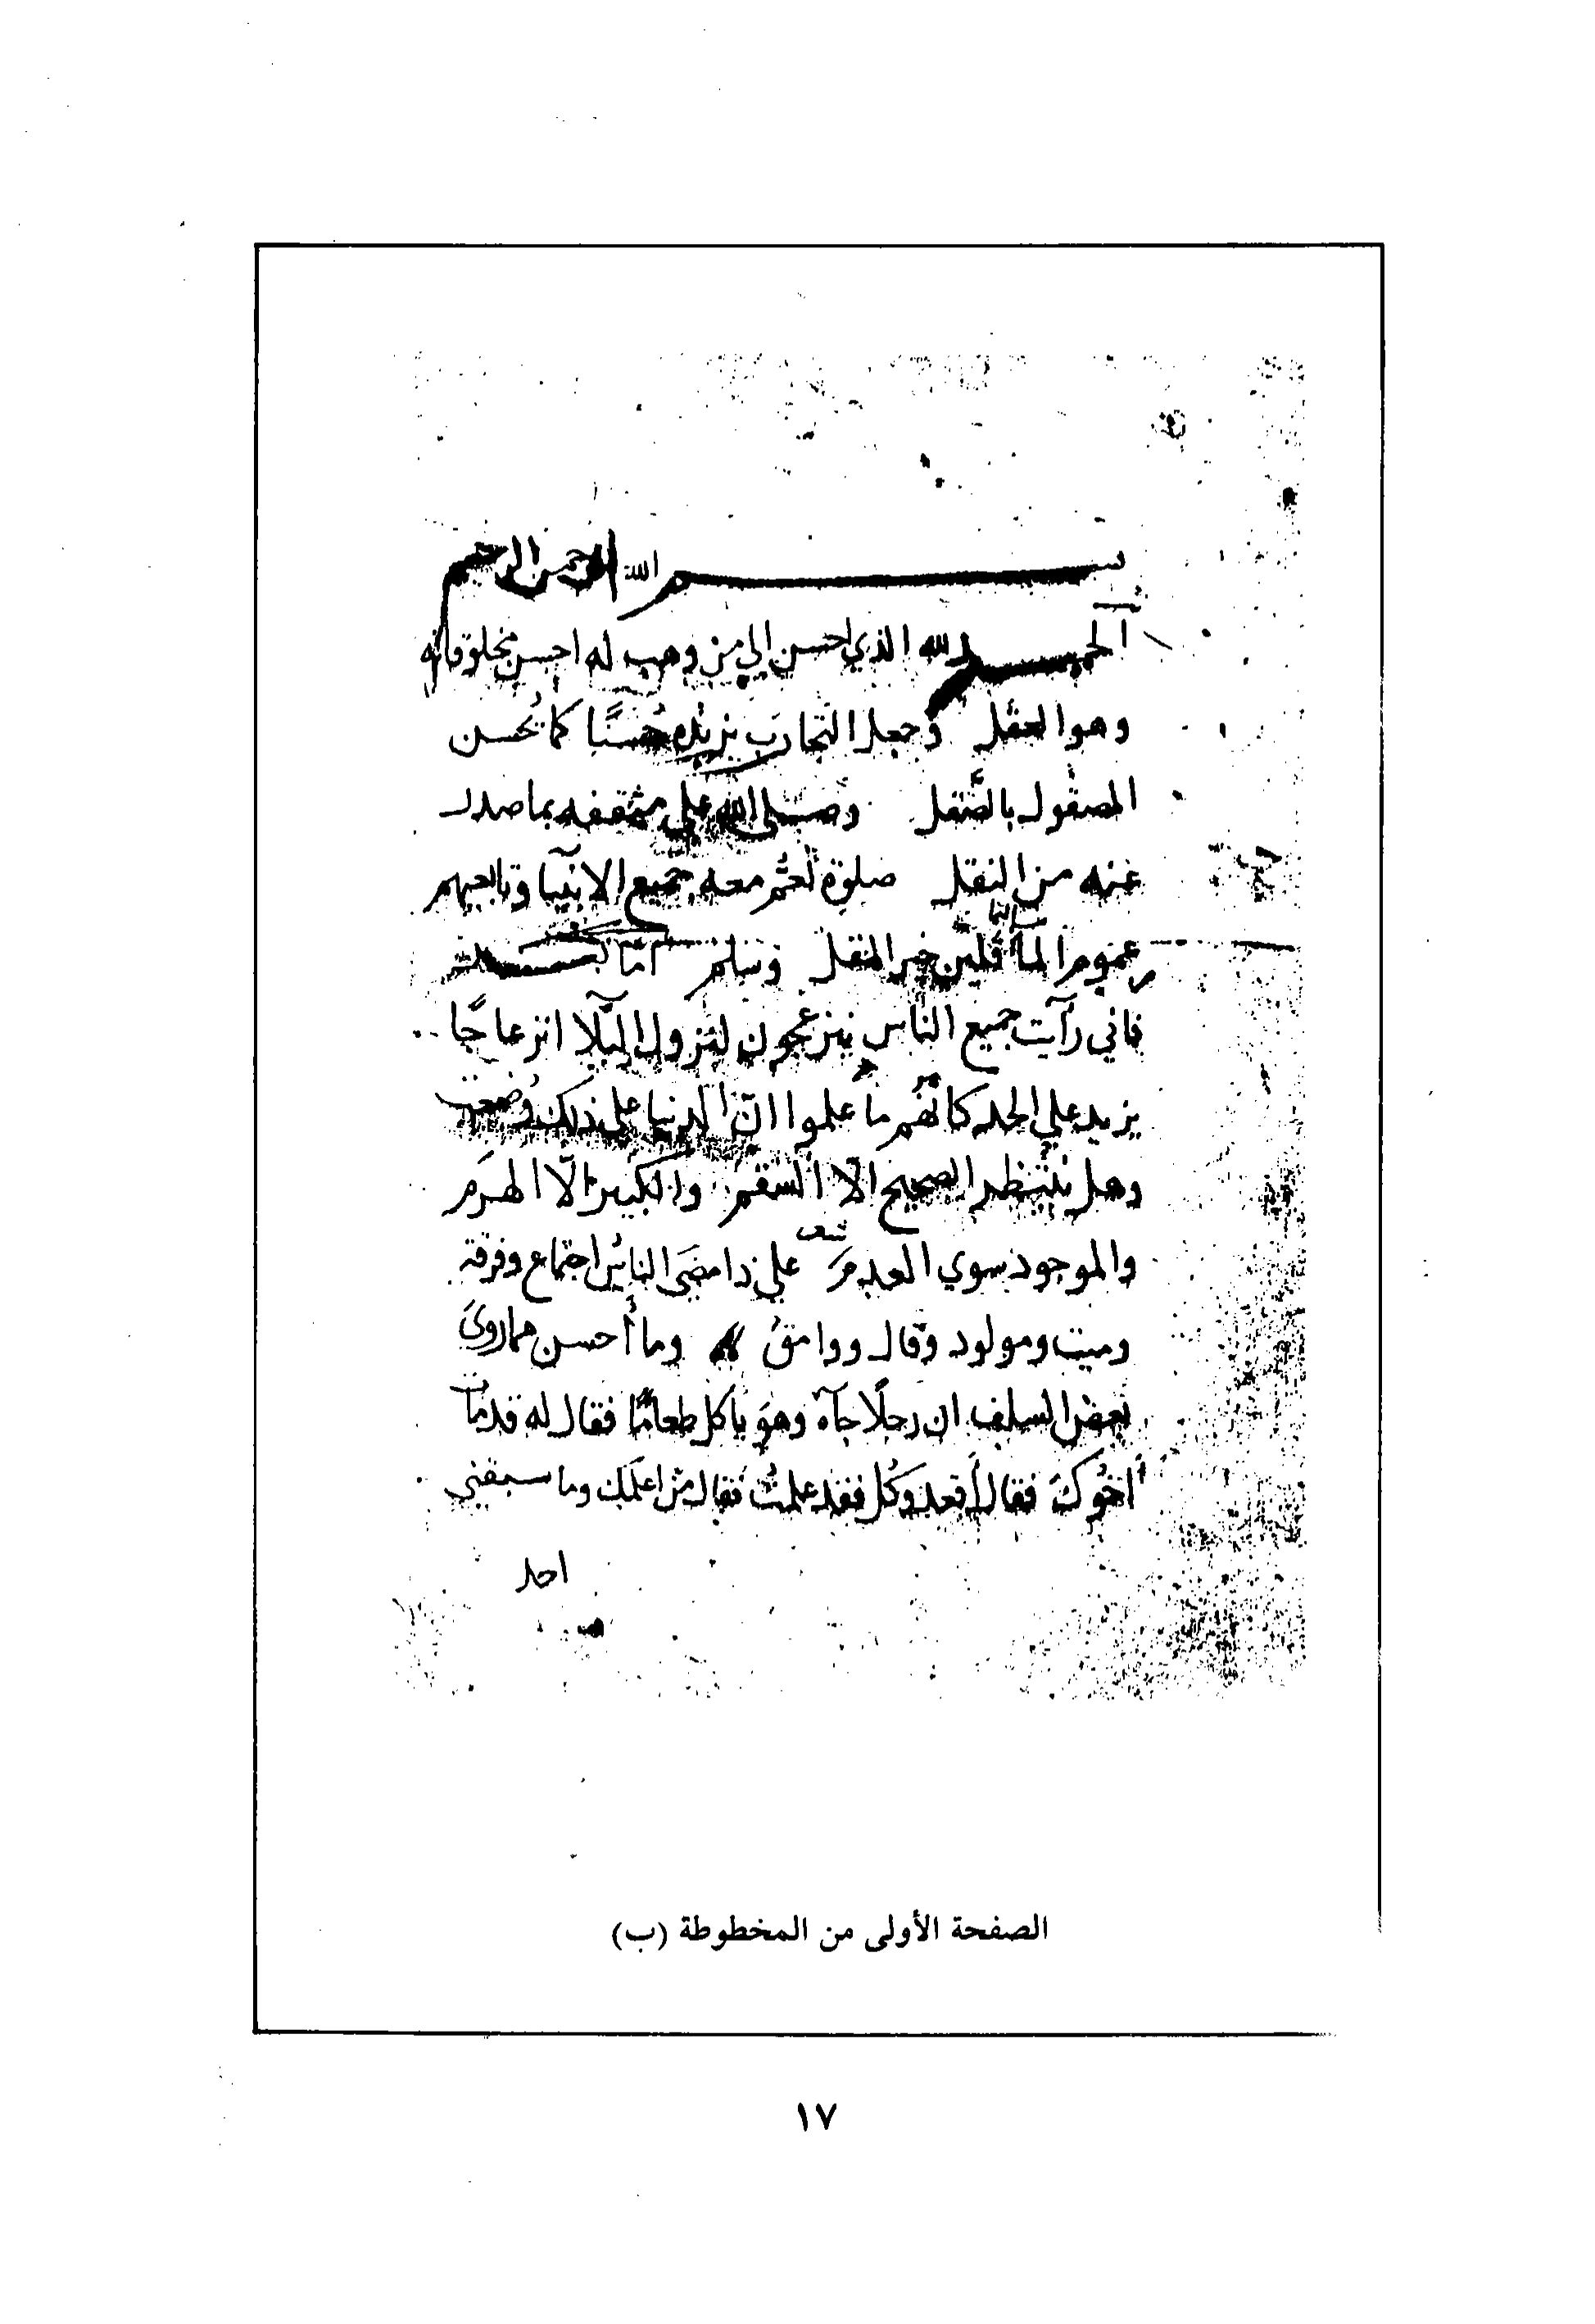 بسم الله الرحمن الرحيم
الحمد لله الذي احسن الي من وهب له احسن مخلوقاته
وهو العقل وجعل التجارب تزيده حُسنًا كما تُحسن
المصقول بالصَّقل وصلى الله على مثقفه بما صدر
عنه من النقل صلوة تعمّ معه جميع الانبيا وتابعيهم
عموم الما قلين خير المنقل وسلم امّا بعد
فاني رأيت جميع الناس ينزعجون لنزول البلا انزعاجًا
يزيد على الحد كانهم ما علموا انّ الدنيا على ذلك وُضعت
وهل ينتظر الصحيح الّا السقم والكبير الّا الهَرَم
والموجود سوي العدم شعر علي ذا مضَى الناس اجتماع وفرقة
وميت ومولود وقال ووامق وما أحسن مماروي
بعض السلف ان رجلًا جآه وهو ياكل طعامًا فقال له قد مات
أخوك فقال أقعد وكُل فقد علمتُ فقال من اعلمك وما سبقني
احد
الصفحة الأولى من المخطوطة (ب)
١٧